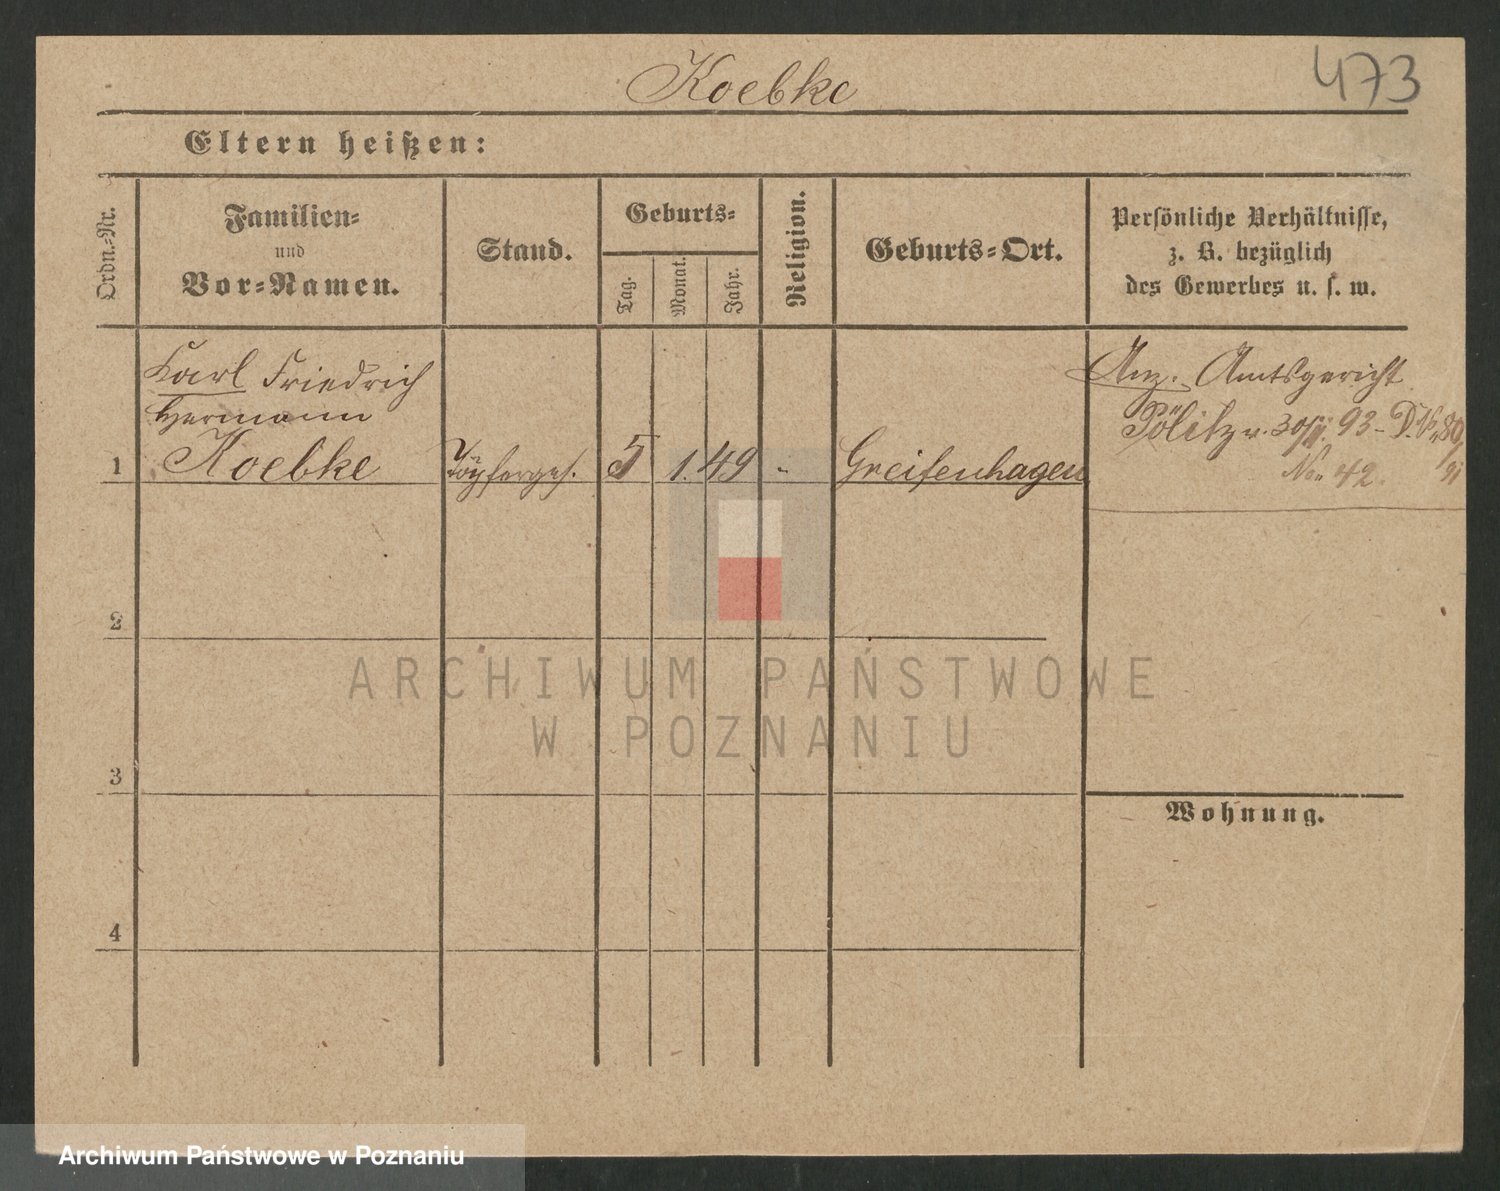 Koebke
473
Eltern heißen:
Ordn.-Nr.
Familien-
und
Vor-Namen.
Stand.
Geburts-
Tag.
Monat.
Jahr.
Religion.
Geburts-Ort.
Persönliche Verhältnisse,
z. B. bezüglich
des Gewerbes u. s. w.
Carl Friedrich
Hermann
1 Koebke Töpferges. 5 1. 49 Greifenhagen
Anz. Amtsgericht
Pölitz v. 93 - D.
No 42.
2
3
4
Wohnung.
ARCHIWUM PAŃSTWOWE
W POZNANIU
Archiwum Państwowe w Poznaniu